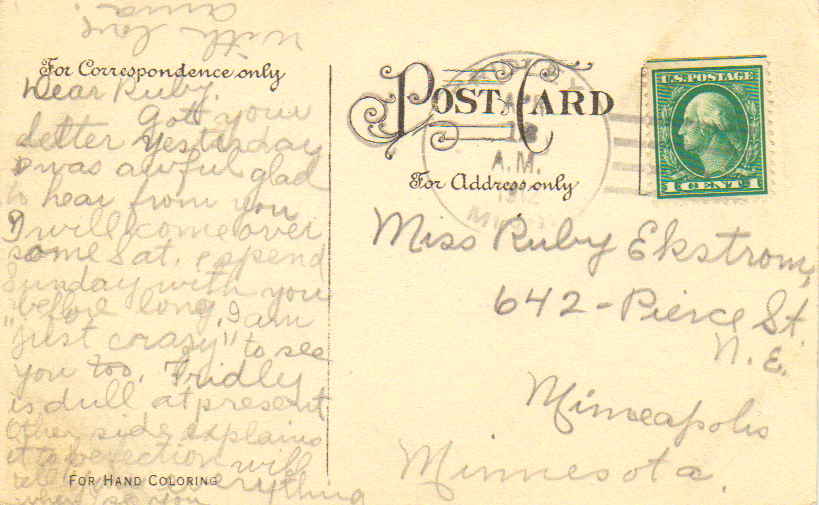 For Correspondence only
Dear Ruby.
Gott your
letter yesterday
was awful glad
to hear from you
I will come over
some Sat. & spend
Sunday with you
before long, I am
"just crasy" to see
you too. Fridly
is dull at present
Other side explains
it to perfection will
everything
when see you
with love
Anna.
FOR HAND COLORING
POST CARD
For Address only
A.M.
U.S. POSTAGE
1 CENT 1
Miss Ruby Ekstrom,
642-Pierce St.
N.E.
Minneapolis
Minnesota.